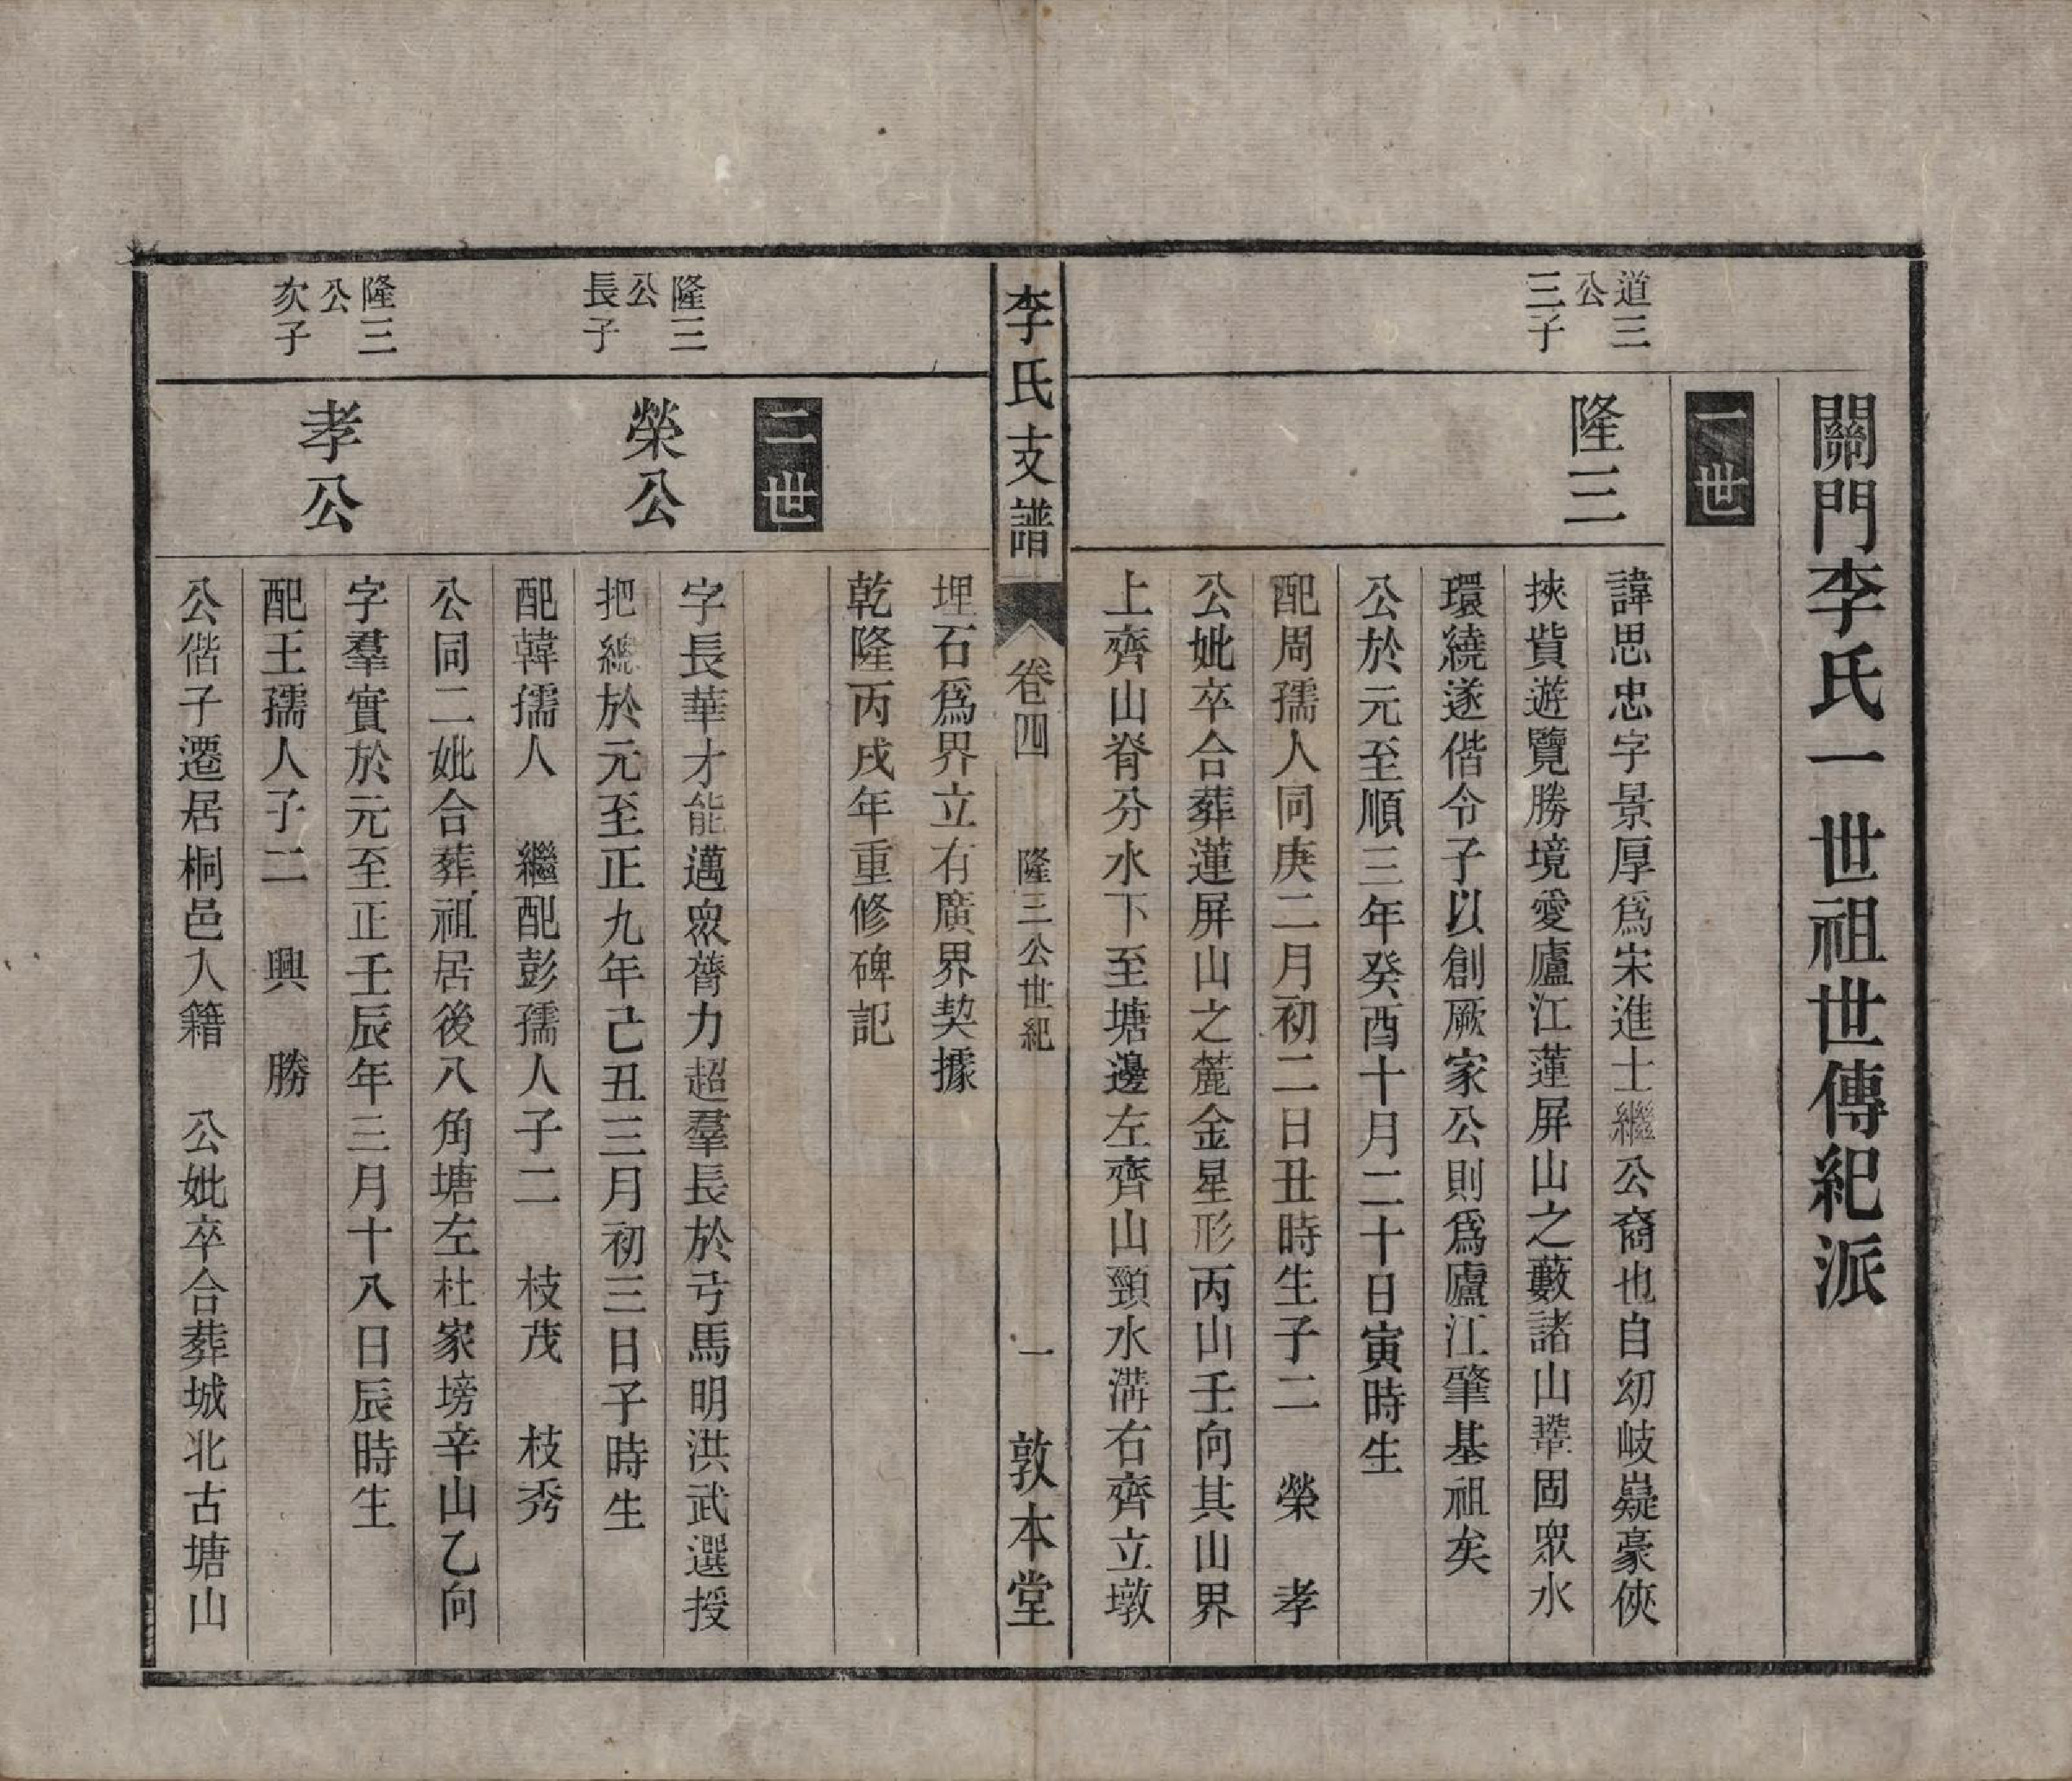 關門李氏一世祖世傳紀派
一世
道三
公
三子
隆三
諱思忠字景厚爲宋進士繼公裔也自幼岐嶷豪俠
挾貲遊覽勝境愛廬江蓮屏山之藪諸山鞏固眾水
環繞遂偕令子以創厥家公則爲廬江肇基祖矣
公於元至順三年癸酉十月二十日寅時生
配周孺人同庚二月初二日丑時生子二　榮　孝
公妣卒合葬蓮屏山之麓金星形丙山壬向其山界
上齊山脊分水下至塘邊左齊山頸水溝右齊立墩
李氏支譜
卷四
隆三公世紀
一
敦本堂
埋石爲界立有廣界契據
乾隆丙戌年重修碑記
二世
隆三
公
長子
榮公
字長華才能邁眾膂力超羣長於弓馬明洪武選授
把總於元至正九年己丑三月初三日子時生
配韓孺人　繼配彭孺人子二　枝茂　枝秀
公同二妣合葬祖居後八角塘左杜家塝辛山乙向
隆三
公
次子
孝公
字羣實於元至正壬辰年三月十八日辰時生
配王孺人子二　興　勝
公偕子遷居桐邑入籍　公妣卒合葬城北古塘山